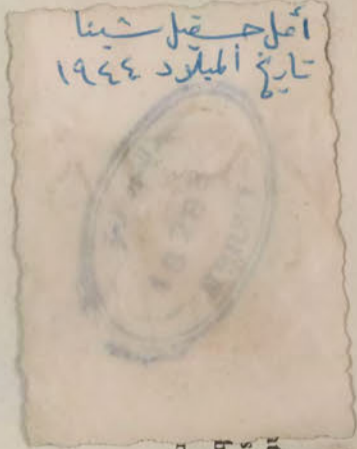 أمل حسقيل شينا
تاريخ الميلاد ١٩٤٤